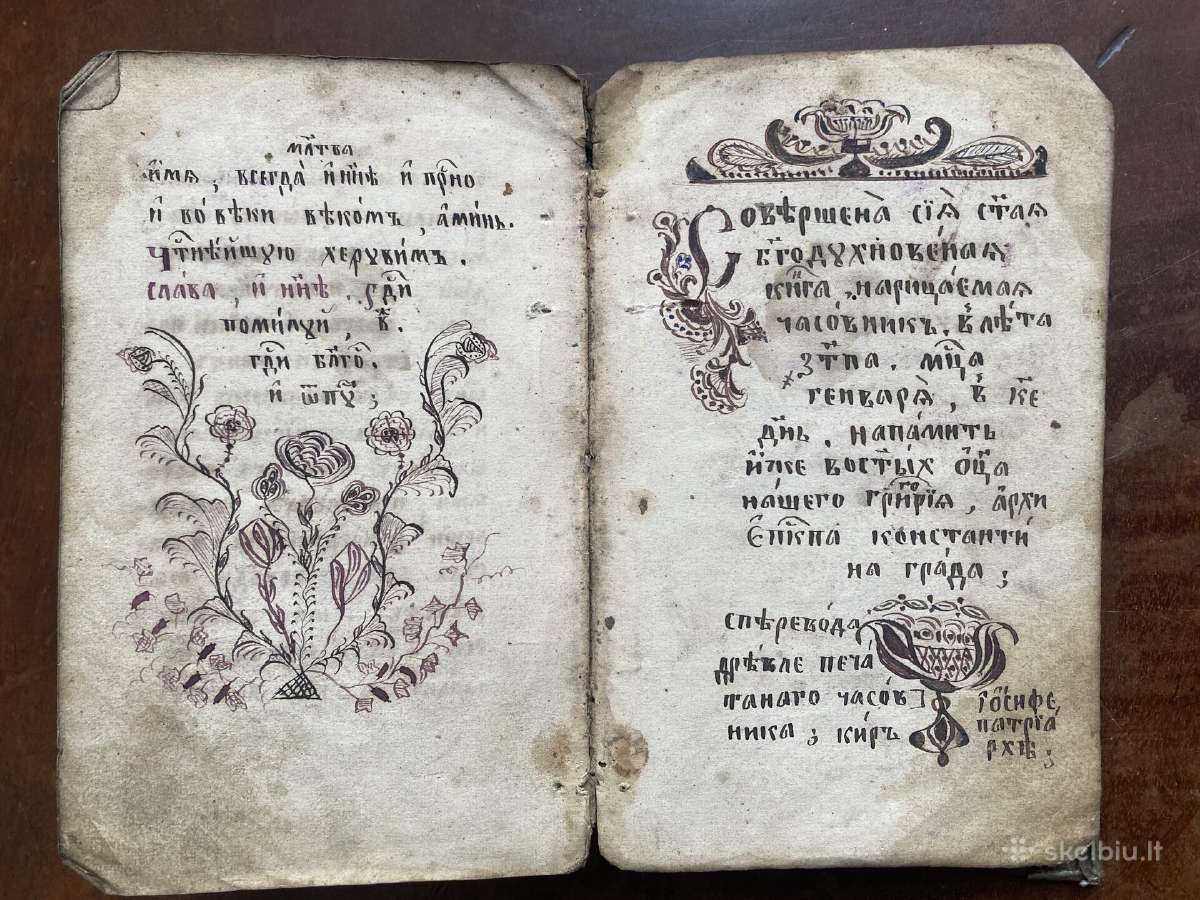 мл҃тва
и҆́мѧ, всегда̀ и҆ нн҃ѣ и҆ при́сно
и҆ во́ вѣ́ки вѣ́комъ, а҆ми́нь.
Чт҃нѣ́йшую херувимъ.
сла́ва, и҆ нн҃ѣ. гд҃и
поми́луй, в҃.
гд҃и бл҃гв҃.
и҆ ѿпу҃;
Совѣршена̀ сїѧ̀ ст҃аѧ
бг҃одухнове́наѧ
кни́га, нарица́емаѧ
часо́вникъ, в лѣ́та
҂зт҃па. мц҃а
генварѧ̀, в҃ ке҃
дн҃ь. напа́мить
и҆́же во ст҃ы́х ѻ҆ц҃а
на́шего григо́рїѧ, а҆рхи
є҆пк҃па константи́
на гра́да;
спѣрево́да
дрѣ́вле печа́
танаго часо́в
ника; ки́ръ
і҆о́сифе,
патриа́
рхѣ;
skelbiu.lt